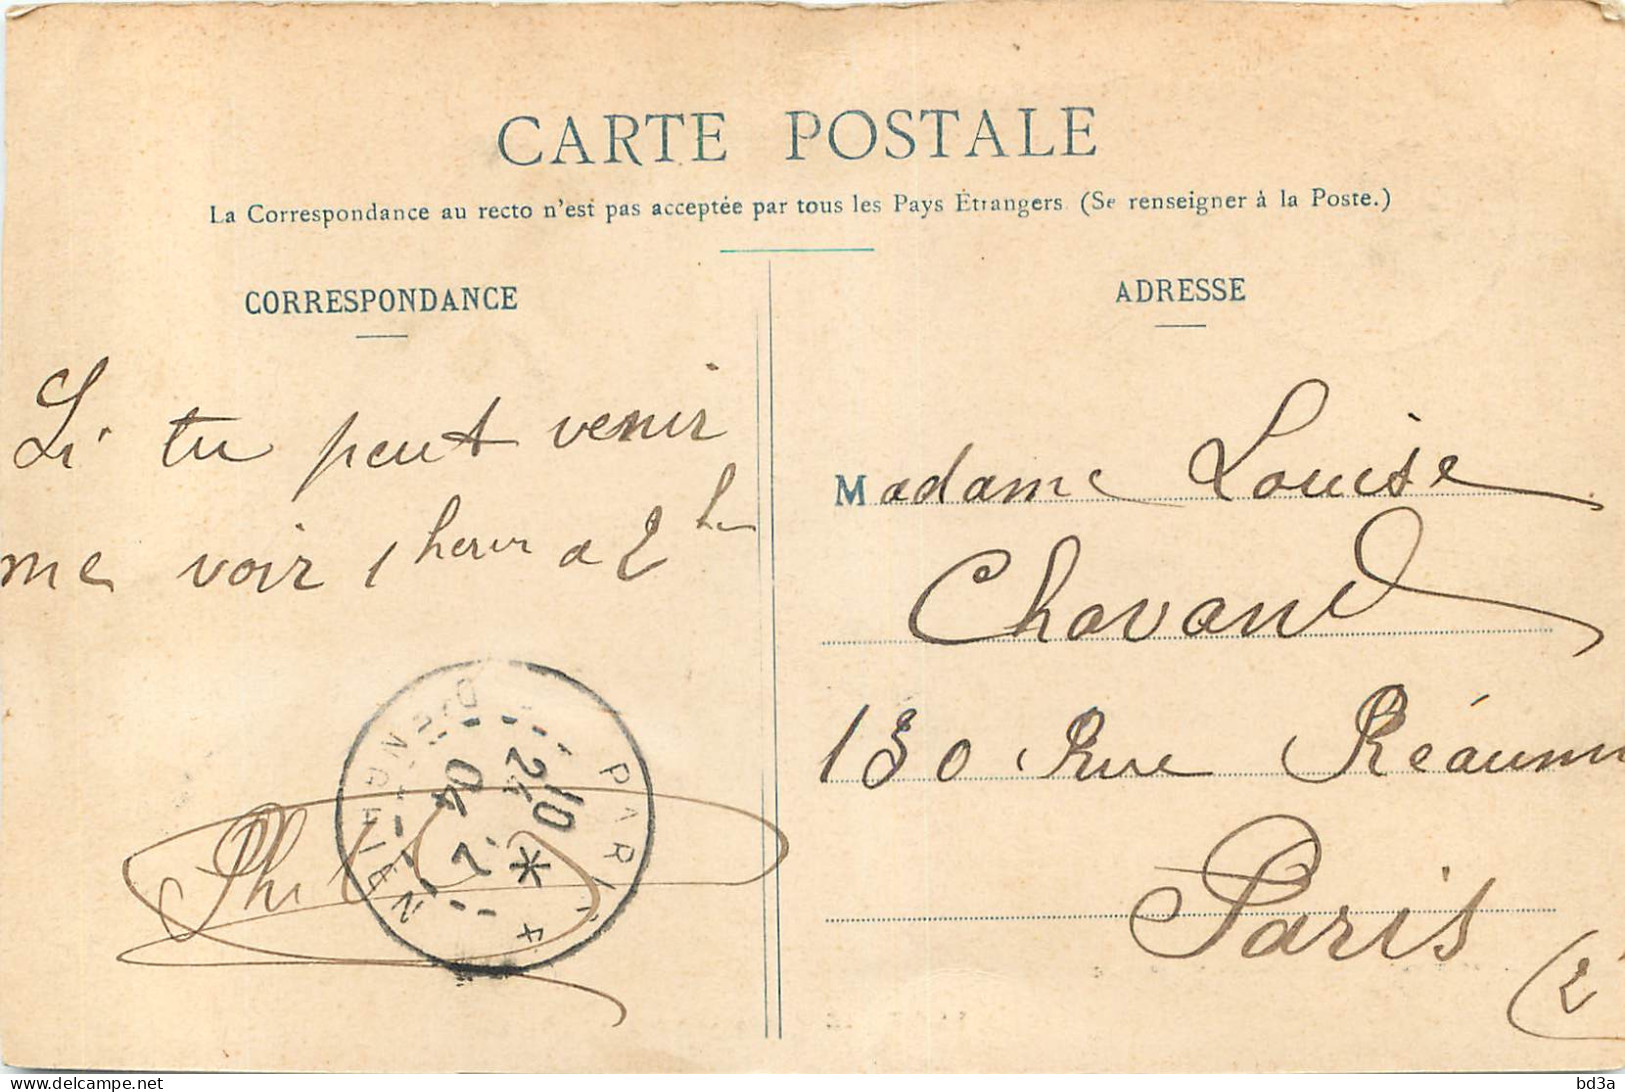 CARTE POSTALE
La Correspondance au recto n'est pas acceptée par tous les Pays Étrangers (Se renseigner à la Poste.)
CORRESPONDANCE
Si tu peut venir
me voir 1 heure a 2 h
ADRESSE
Madame Louise
Chavand
130 Rue Réaumu
Paris
(2
PARIS
04
delcampe.net
bd3a